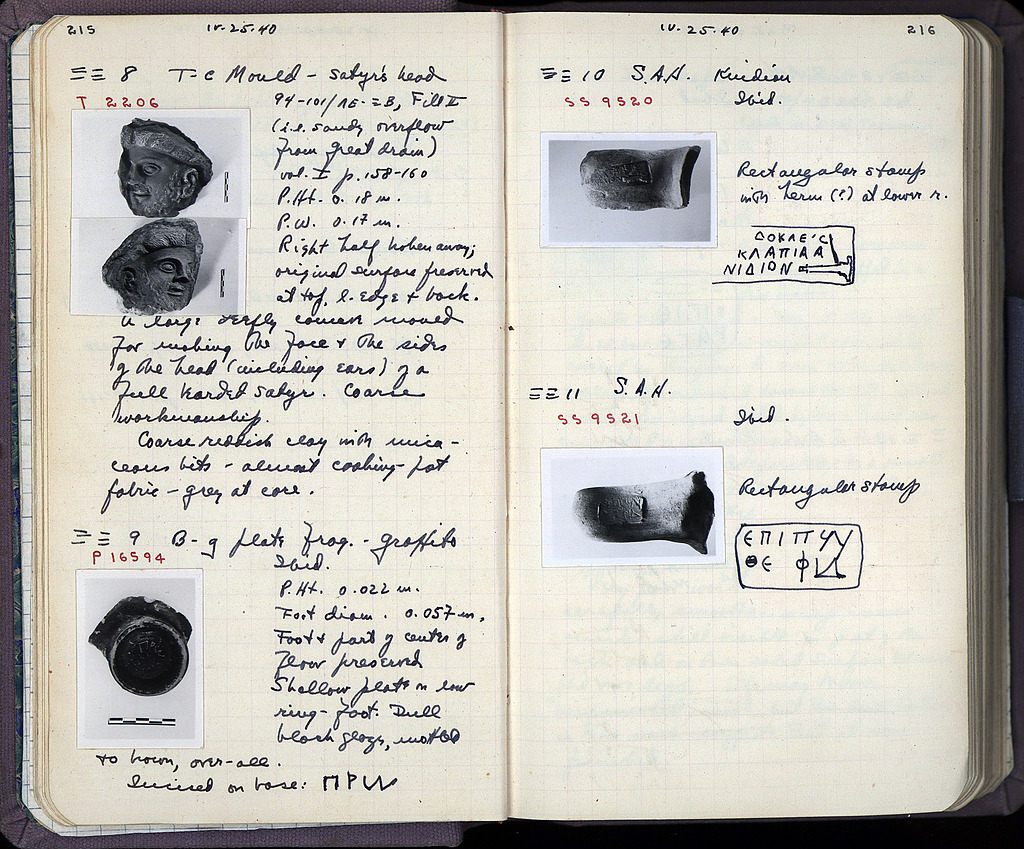 215
IV-25-40
ΞΞ 8 T-C Mould - Satyr's head
T 2206
94-101/ΛΕ-ΞB, Fill II
(i.e. sandy overflow
from great drain)
vol. I p. 158-160
P.Ht. 0.18 m.
P.W. 0.17 m.
Right half broken away;
original surface preserved
at top, l. edge + back.
A large deeply concave mould
for making the face + the sides
of the head (including ears) of a
full bearded satyr. Coarse
workmanship.
Coarse reddish clay with mica-
ceous bits - almost cooking-pot
fabric - grey at core.
ΞΞ 9 B-g plate frag. - graffito
P 16594
Ibid.
P.Ht. 0.022 m.
Foot diam. 0.057 m.
Foot + part of center of
floor preserved
Shallow plate on low
ring-foot. Dull
black glaze, mottled
to brown, over-all.
Incised on base: ΠΡω
216
IV-25-40
ΞΞ 10 S.A.H. Knidian
SS 9520
Ibid.
Rectangular stamp
with herm (?) at lower r.
ΔΟΚΛΕ'Σ
ΚΛΑΠΙΔΑ
ΝΙΔΙΟΝ
ΞΞ 11 S.A.H.
SS 9521
Ibid.
Rectangular stamp
ΕΠΙΠΥ
ΘΕ